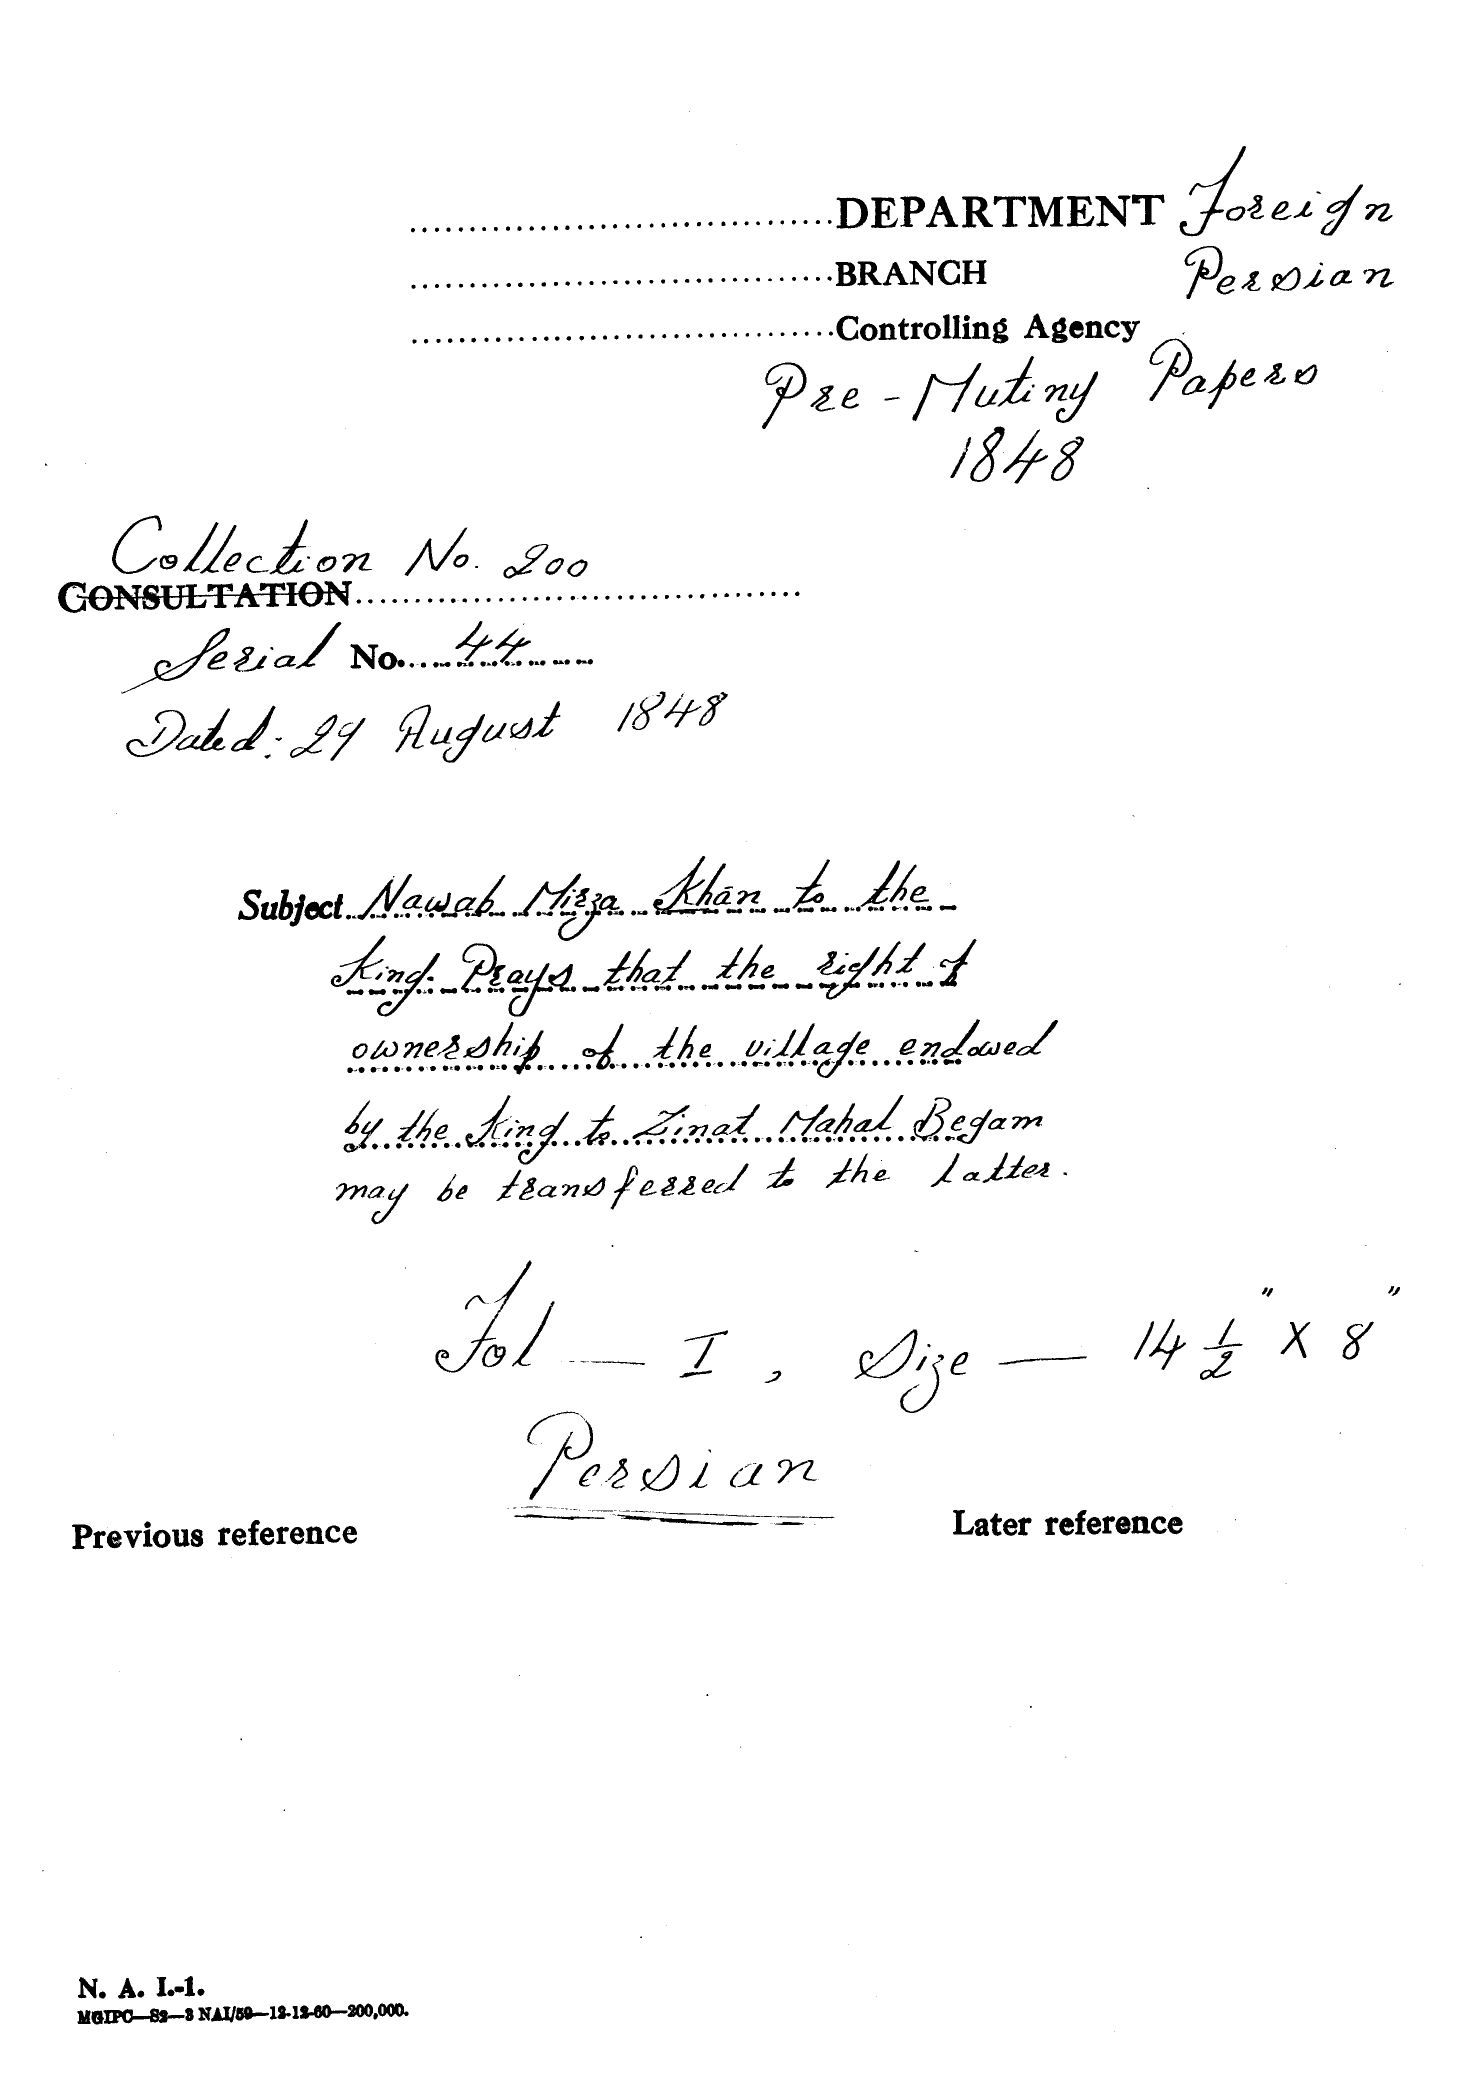 ....................................DEPARTMENT Foreign
....................................BRANCH Persian
....................................Controlling Agency
Pre-Mutiny Papers
1848
Collection No. 200
CONSULTATION......................................
Serial No. 44
Dated: 29 August 1848
Subject Nawab Mirza Khan to the
King. Prays that the right of
ownership of the village endowed
by the King to Zinat Mahal Begam
may be transferred to the latter.
Fol — I, Size — 14 1/2" X 8"
Persian
Previous reference Later reference
N. A. I.-1.
MGIPC—S2—3 NAI/59—12-12-60—200,000.